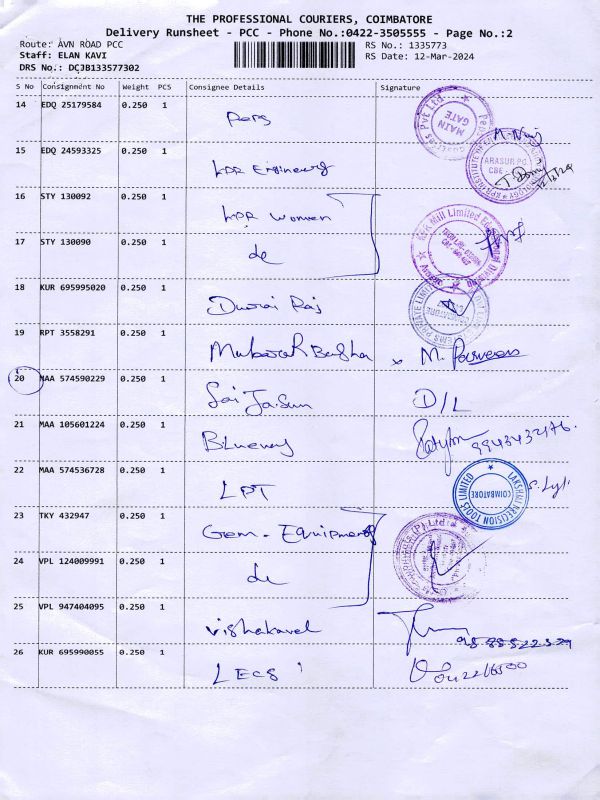 THE PROFESSIONAL COURIERS, COIMBATORE
Delivery Runsheet - PCC - Phone No.:0422-3505555 - Page No.:2
Route: AVN ROAD PCC RS No.: 1335773
Staff: ELAN KAVI RS Date: 12-Mar-2024
DRS No.: DCJB133577302
S No Consignment No Weight PCS Consignee Details Signature
14 EDQ 25179584 0.250 1
MAIN GATE
15 EDQ 24593325 0.250 1
ARASUR PO
16 STY 130092 0.250 1 KPR Women
17 STY 130090 0.250 1 do
KPR Mill Limited
18 KUR 695995020 0.250 1 Durai Raj
19 RPT 3558291 0.250 1 Mubarak Basha x M. Parveen
20 MAA 574590229 0.250 1 Sai Ja.Sun D/L
21 MAA 105601224 0.250 1 9943432176.
22 MAA 574536728 0.250 1 LPT
LAKSHMI PRECISION TOOLS LIMITED
COIMBATORE
23 TKY 432947 0.250 1 Gem. Equipments
24 VPL 124009991 0.250 1 do
25 VPL 947404095 0.250 1 Vishakavel
26 KUR 695990055 0.250 1 LECS